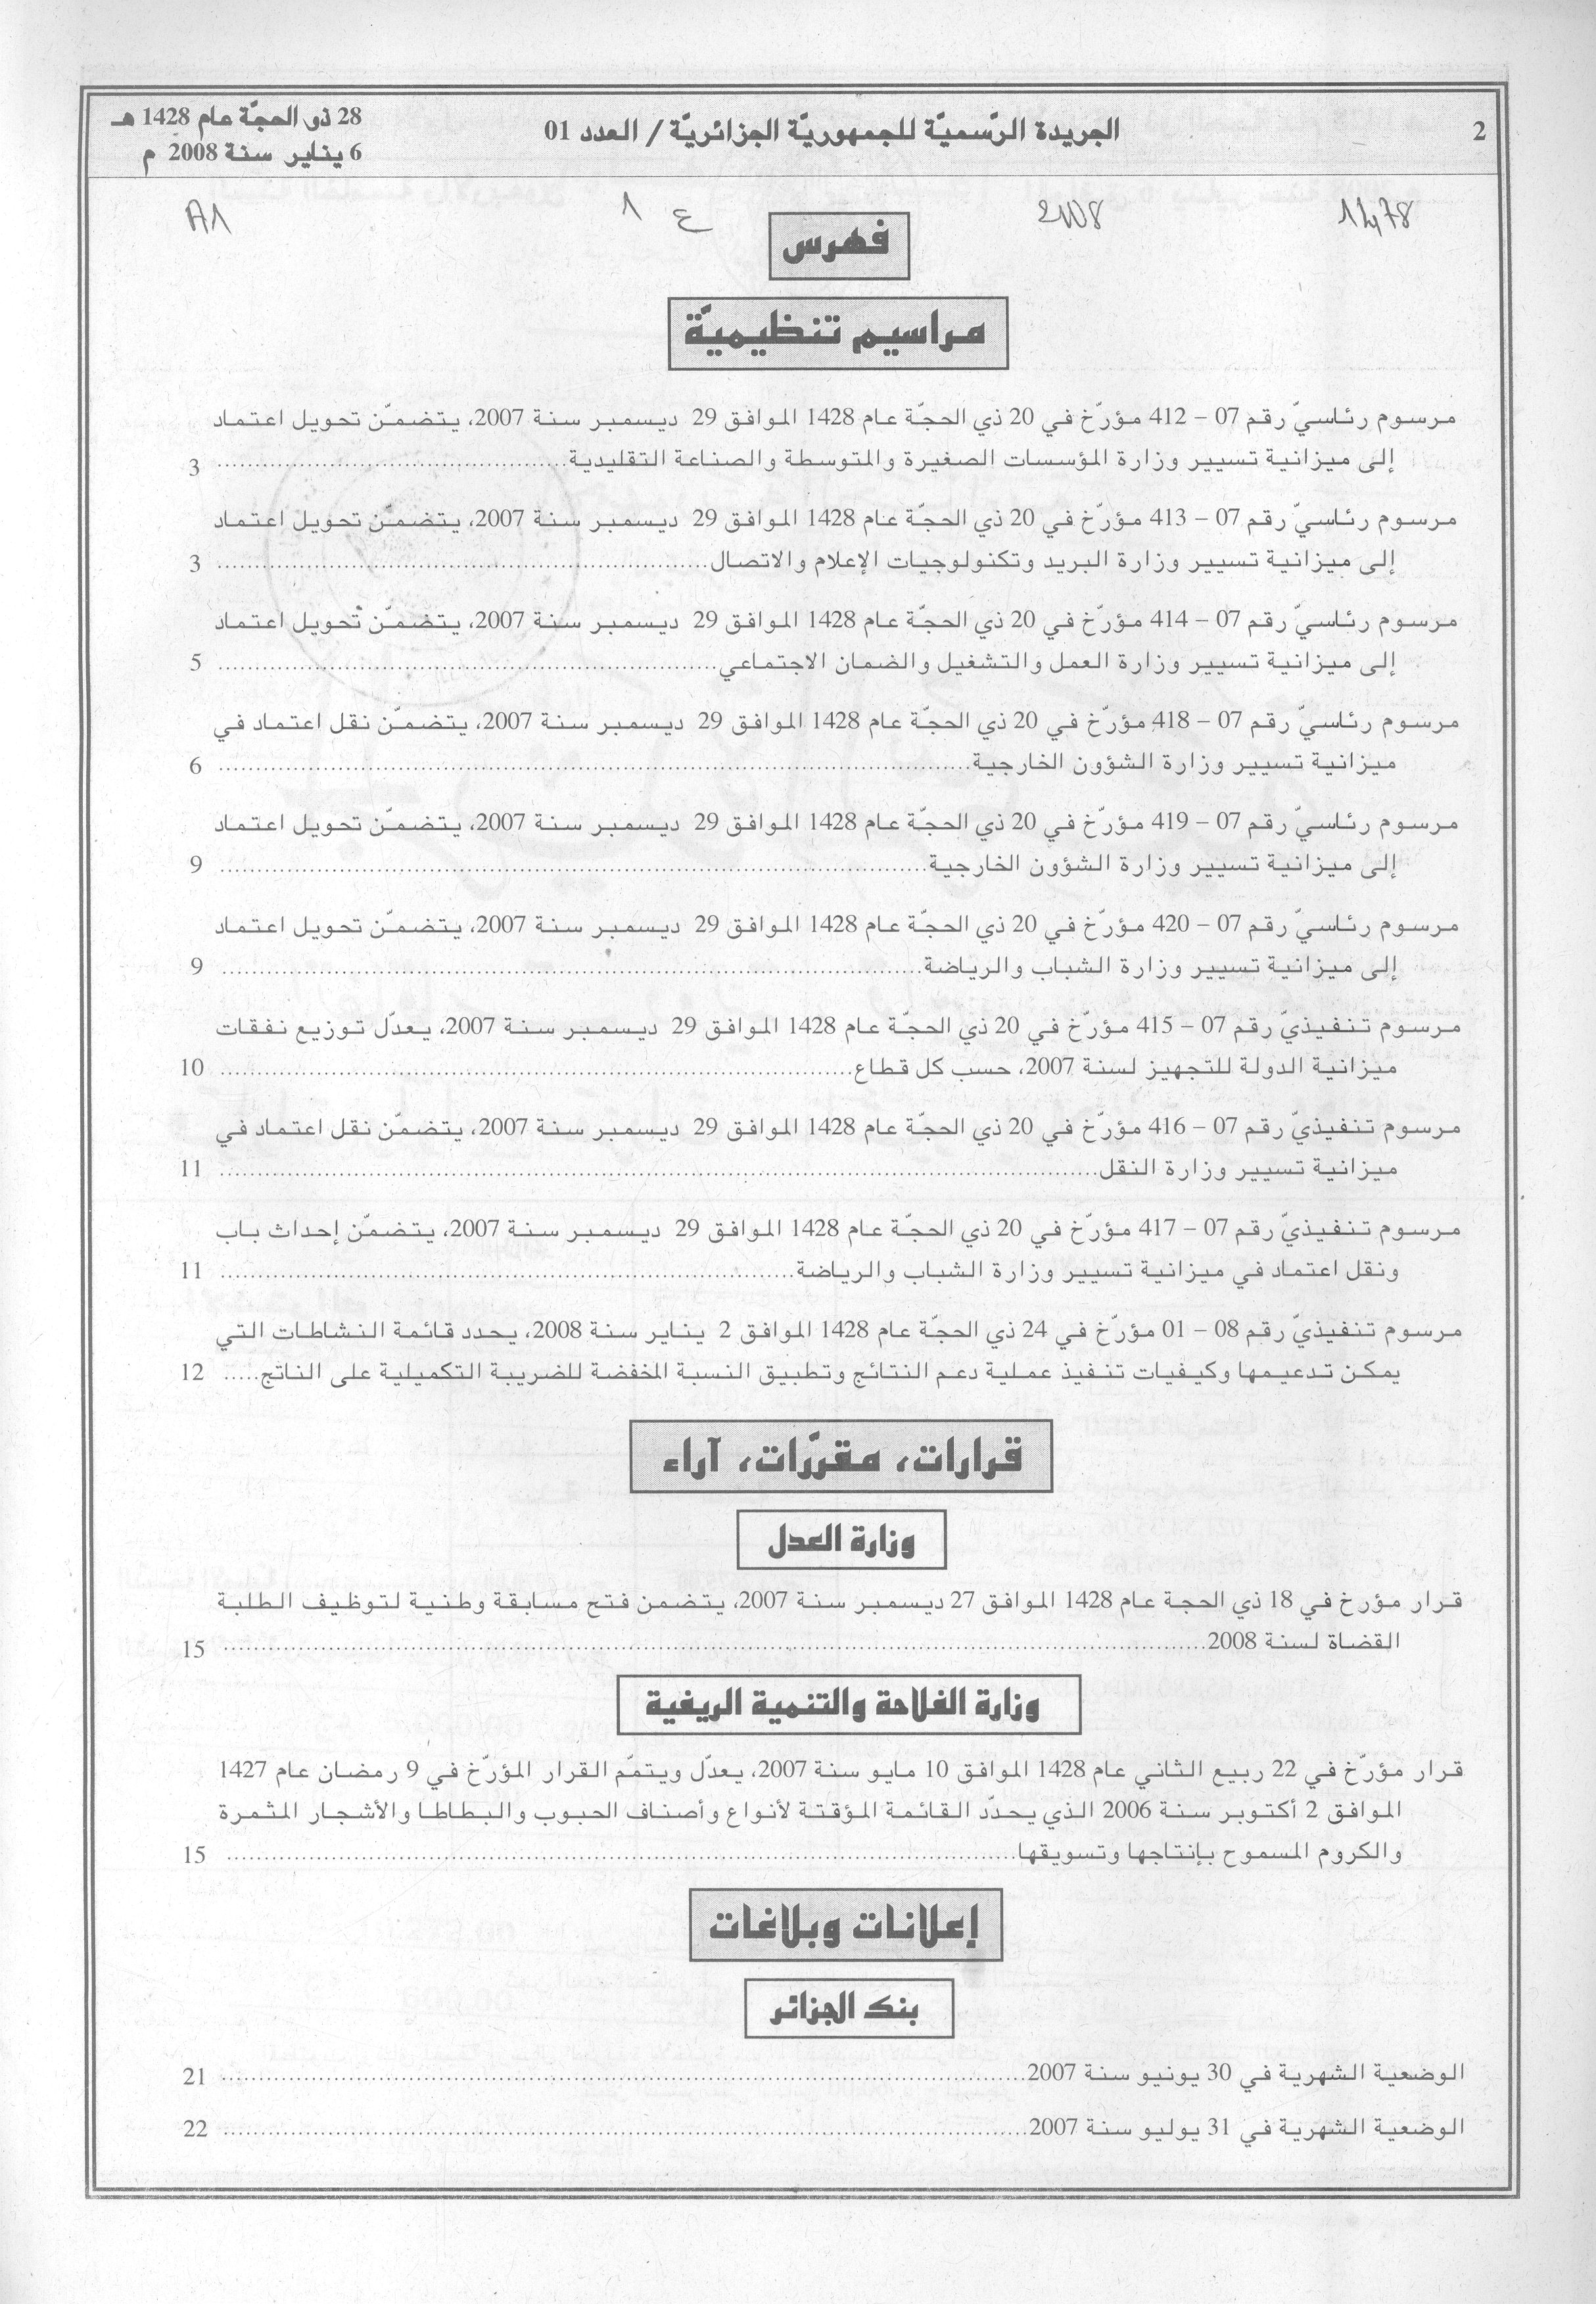 2
الجريدة الرّسميّة للجمهوريّة الجزائريّة / العدد 01
28 ذو الحجّة عام 1428 هـ
6 يناير سنة 2008 م
2008
ع 1
A1
فهرس
مراسيم تنظيميّة
مرسوم رئاسيّ رقم 07 – 412 مؤرّخ في 20 ذي الحجّة عام 1428 الموافق 29 ديسمبر سنة 2007، يتضمّن تحويل اعتماد
إلى ميزانية تسيير وزارة المؤسسات الصغيرة والمتوسطة والصناعة التقليدية ........ 3
مرسوم رئاسيّ رقم 07 – 413 مؤرّخ في 20 ذي الحجّة عام 1428 الموافق 29 ديسمبر سنة 2007، يتضمّن تحويل اعتماد
إلى ميزانية تسيير وزارة البريد وتكنولوجيات الإعلام والاتصال ........ 3
مرسوم رئاسيّ رقم 07 – 414 مؤرّخ في 20 ذي الحجّة عام 1428 الموافق 29 ديسمبر سنة 2007، يتضمّن تحويل اعتماد
إلى ميزانية تسيير وزارة العمل والتشغيل والضمان الاجتماعي ........ 5
مرسوم رئاسيّ رقم 07 – 418 مؤرّخ في 20 ذي الحجّة عام 1428 الموافق 29 ديسمبر سنة 2007، يتضمّن نقل اعتماد في
ميزانية تسيير وزارة الشؤون الخارجية ........ 6
مرسوم رئاسيّ رقم 07 – 419 مؤرّخ في 20 ذي الحجّة عام 1428 الموافق 29 ديسمبر سنة 2007، يتضمّن تحويل اعتماد
إلى ميزانية تسيير وزارة الشؤون الخارجية ........ 9
مرسوم رئاسيّ رقم 07 – 420 مؤرّخ في 20 ذي الحجّة عام 1428 الموافق 29 ديسمبر سنة 2007، يتضمّن تحويل اعتماد
إلى ميزانية تسيير وزارة الشباب والرياضة ........ 9
مرسوم تنفيذيّ رقم 07 – 415 مؤرّخ في 20 ذي الحجّة عام 1428 الموافق 29 ديسمبر سنة 2007، يعدّل توزيع نفقات
ميزانية الدولة للتجهيز لسنة 2007، حسب كل قطاع ........ 10
مرسوم تنفيذيّ رقم 07 – 416 مؤرّخ في 20 ذي الحجّة عام 1428 الموافق 29 ديسمبر سنة 2007، يتضمّن نقل اعتماد في
ميزانية تسيير وزارة النقل ........ 11
مرسوم تنفيذيّ رقم 07 – 417 مؤرّخ في 20 ذي الحجّة عام 1428 الموافق 29 ديسمبر سنة 2007، يتضمّن إحداث باب
ونقل اعتماد في ميزانية تسيير وزارة الشباب والرياضة ........ 11
مرسوم تنفيذيّ رقم 08 – 01 مؤرّخ في 24 ذي الحجّة عام 1428 الموافق 2 يناير سنة 2008، يحدد قائمة النشاطات التي
يمكن تدعيمها وكيفيات تنفيذ عملية دعم النتائج وتطبيق النسبة المخفضة للضريبة التكميلية على الناتج ..... 12
قرارات، مقرّرات، آراء
وزارة العدل
قرار مؤرخ في 18 ذي الحجة عام 1428 الموافق 27 ديسمبر سنة 2007، يتضمن فتح مسابقة وطنية لتوظيف الطلبة
القضاة لسنة 2008 ........ 15
وزارة الفلاحة والتنمية الريفية
قرار مؤرّخ في 22 ربيع الثاني عام 1428 الموافق 10 مايو سنة 2007، يعدّل ويتمّم القرار المؤرّخ في 9 رمضان عام 1427
الموافق 2 أكتوبر سنة 2006 الذي يحدّد القائمة المؤقتة لأنواع وأصناف الحبوب والبطاطا والأشجار المثمرة
والكروم المسموح بإنتاجها وتسويقها ........ 15
إعلانات وبلاغات
بنك الجزائر
الوضعية الشهرية في 30 يونيو سنة 2007 ........ 21
الوضعية الشهرية في 31 يوليو سنة 2007 ........ 22